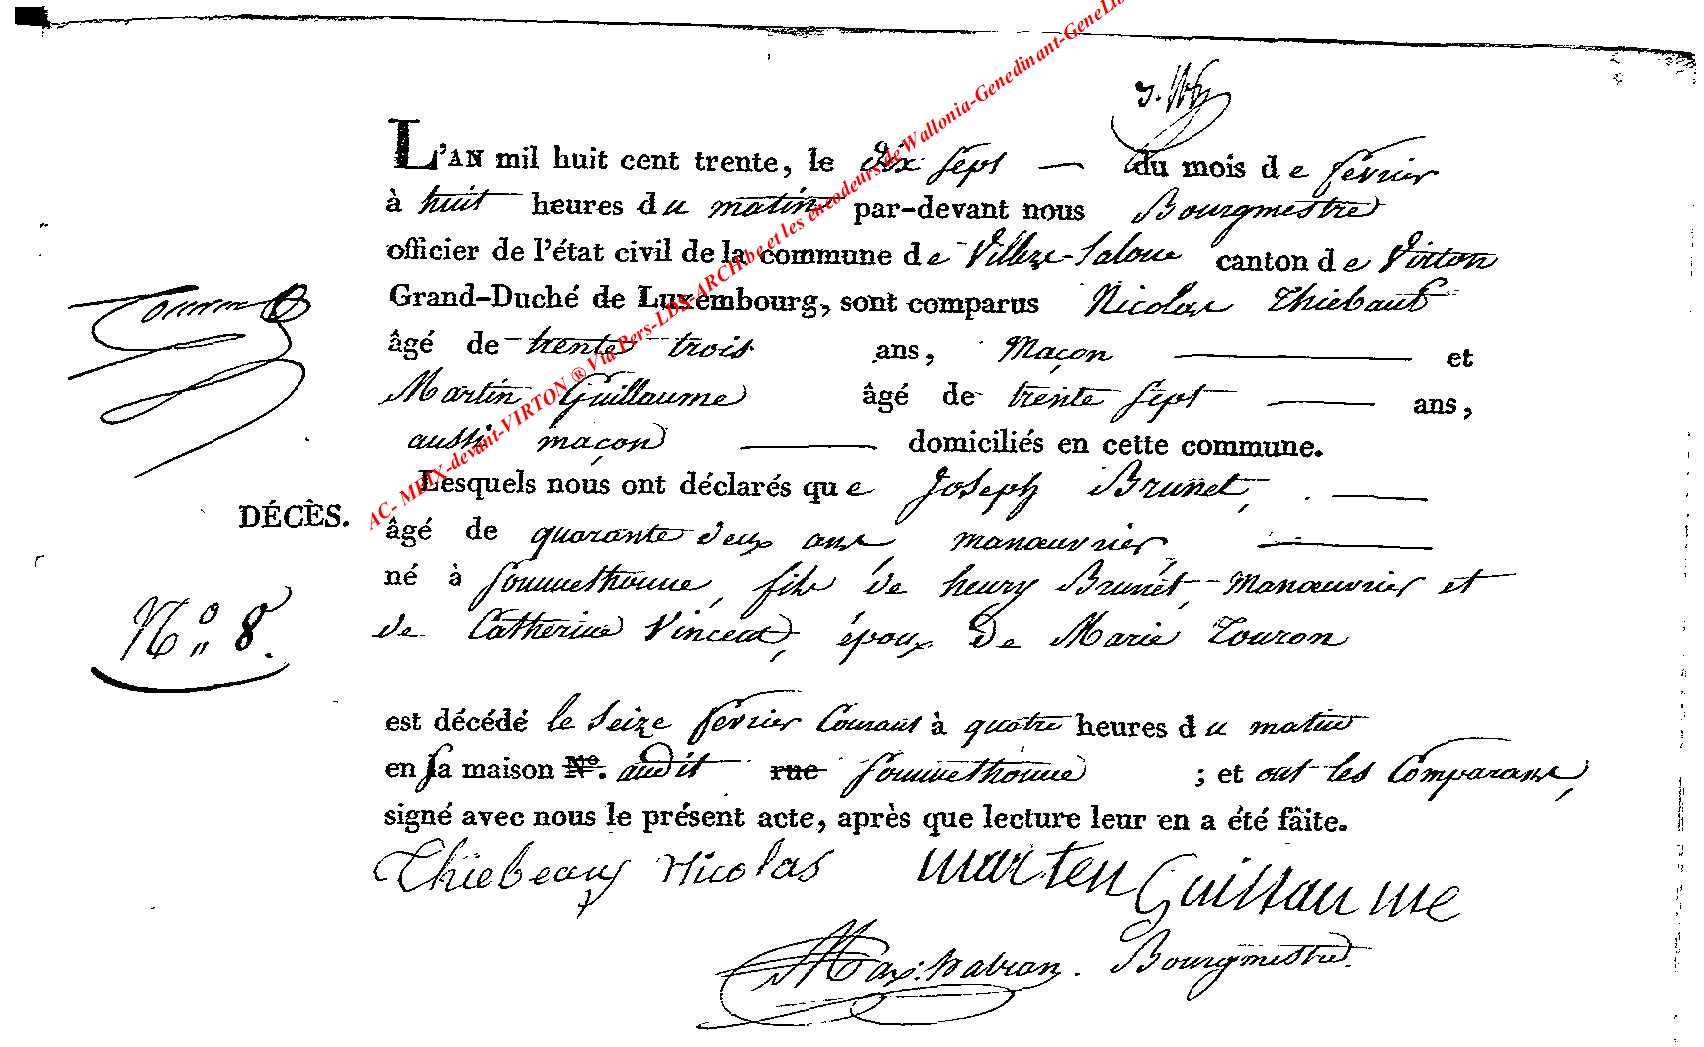 L'AN mil huit cent trente, le dix sept du mois de février
à huit heures du matin par-devant nous Bourgmestre
officier de l'état civil de la commune de Villers-Laloue canton de Virton
Grand-Duché de Luxembourg, sont comparus Nicolas Thiebaut
âgé de trente trois ans, Maçon et
Martin Guillaume âgé de trente sept ans,
aussi maçon domiciliés en cette commune.
Lesquels nous ont déclarés que Joseph Brunet,
DÉCÈS.
âgé de quarante deux ans, manœuvrier,
né à Sommethonne, fils de henry Brunet, Manœuvrier et
N.o 8.
de Catherine Vincent, époux De Marie Touron
est décédé le Seize février Courant à quatre heures du matin
en sa maison No. audit rue Sommethonne ; et ont les Comparans,
signé avec nous le présent acte, après que lecture leur en a été faîte.
Thiebeaux Nicolas Marten Guillaume
Bourgmestre.
AC- MEIX-devant-VIRTON ® Via Pers-LDS-ARCH.be et les encodeurs de Wallonia-Genedinant-GeneLib